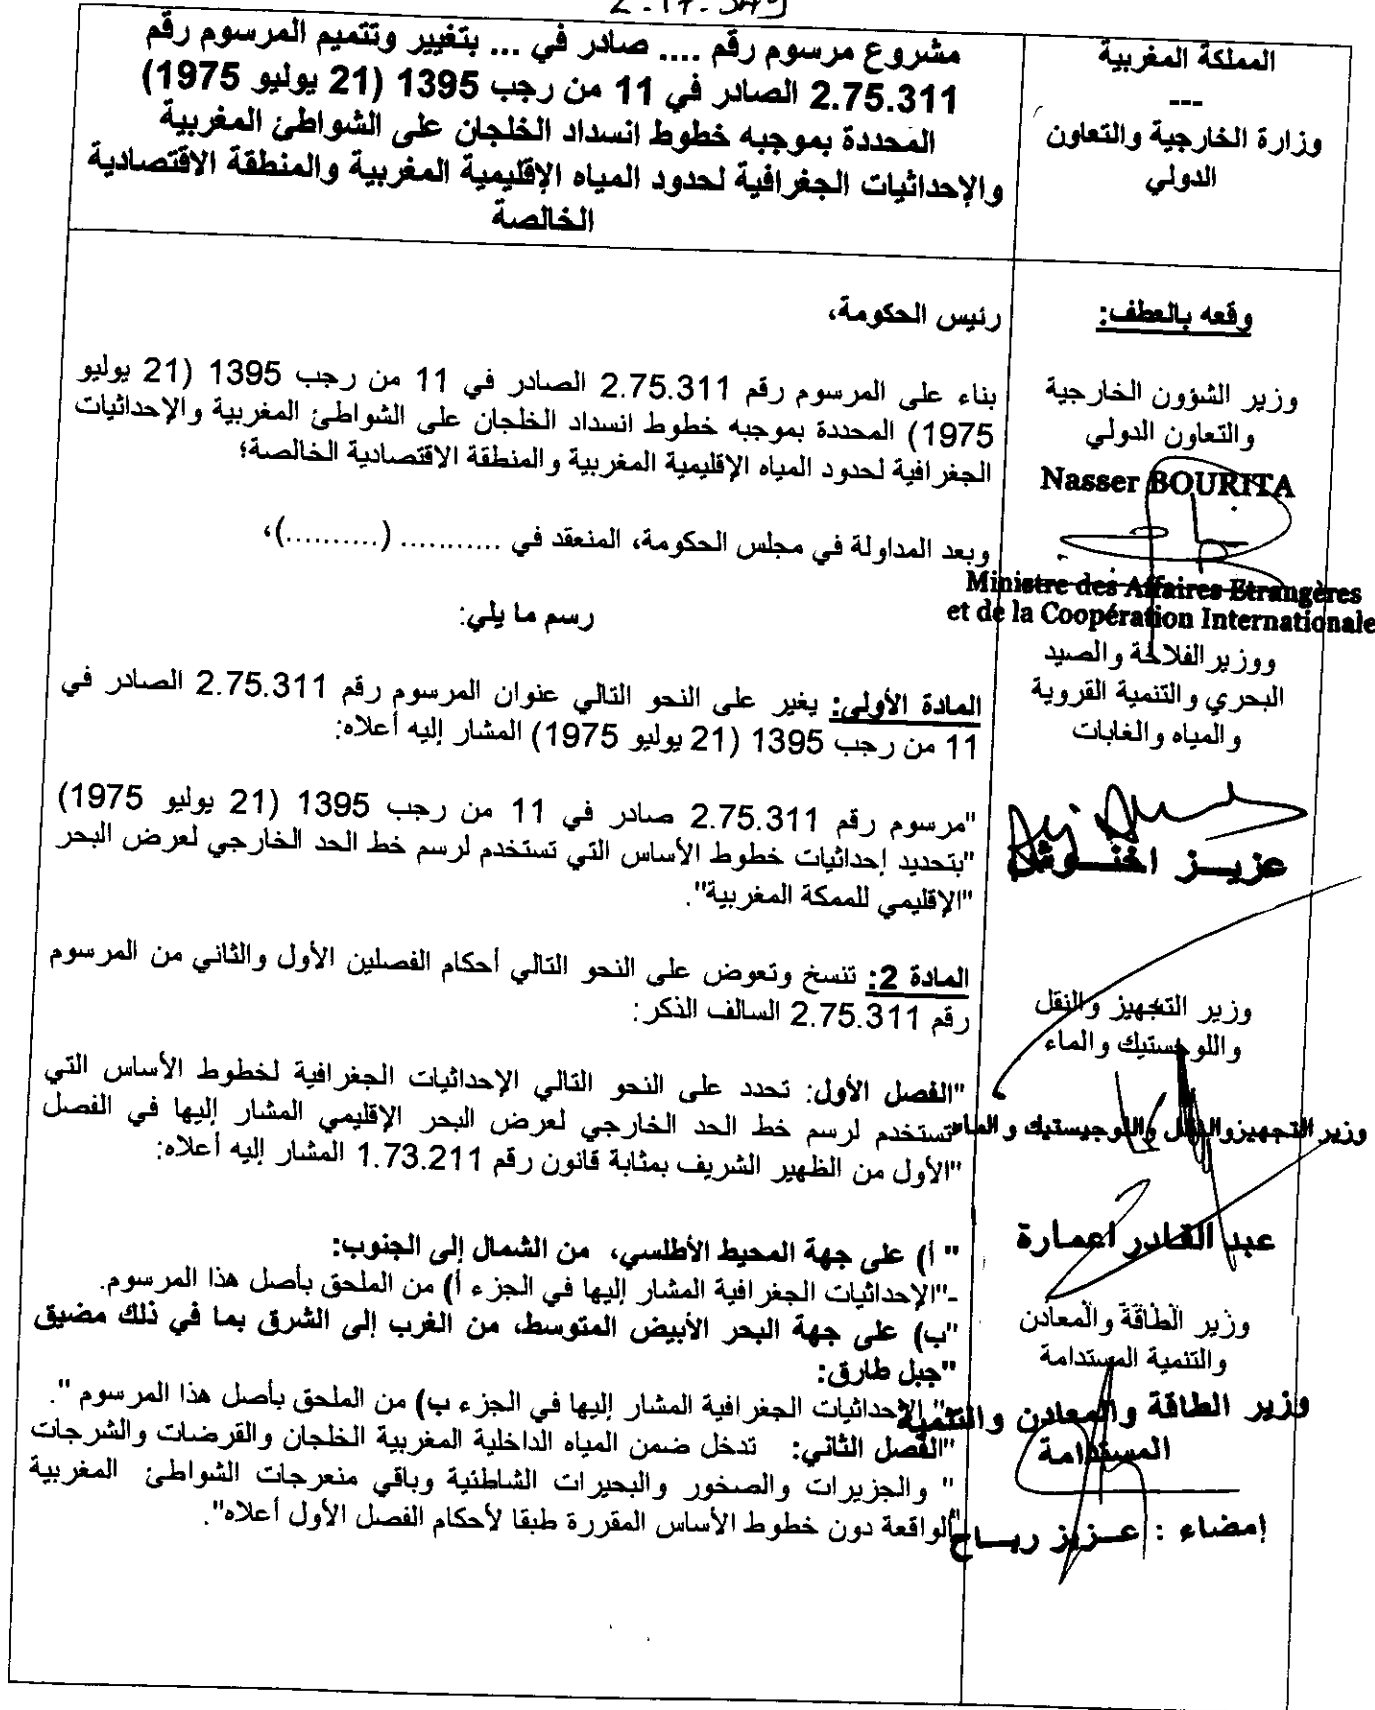 المملكة المغربية
---
وزارة الخارجية والتعاون
الدولي
مشروع مرسوم رقم .... صادر في ... بتغيير وتتميم المرسوم رقم
2.75.311 الصادر في 11 من رجب 1395 (21 يوليو 1975)
المحددة بموجبه خطوط انسداد الخلجان على الشواطئ المغربية
والإحداثيات الجغرافية لحدود المياه الإقليمية المغربية والمنطقة الاقتصادية
الخالصة
وقعه بالعطف:
وزير الشؤون الخارجية
والتعاون الدولي
Nasser BOURITA
Ministre des Affaires Etrangères
et de la Coopération Internationale
ووزير الفلاحة والصيد
البحري والتنمية القروية
والمياه والغابات
عزيــز اخنــوش
وزير التجهيز والنقل
واللوجستيك والماء
وزير التجهيز والنقل واللوجيستيك والماء
عبد القادر اعمارة
وزير الطاقة والمعادن
والتنمية المستدامة
وزير الطاقة والمعادن والتنمية
المستدامة
إمضاء : عــزيز ربــاح
رئيس الحكومة،
بناء على المرسوم رقم 2.75.311 الصادر في 11 من رجب 1395 (21 يوليو
1975) المحددة بموجبه خطوط انسداد الخلجان على الشواطئ المغربية والإحداثيات
الجغرافية لحدود المياه الإقليمية المغربية والمنطقة الاقتصادية الخالصة؛
وبعد المداولة في مجلس الحكومة، المنعقد في ........... (..........)،
رسم ما يلي:
المادة الأولى: يغير على النحو التالي عنوان المرسوم رقم 2.75.311 الصادر في
11 من رجب 1395 (21 يوليو 1975) المشار إليه أعلاه:
"مرسوم رقم 2.75.311 صادر في 11 من رجب 1395 (21 يوليو 1975)
"بتحديد إحداثيات خطوط الأساس التي تستخدم لرسم خط الحد الخارجي لعرض البحر
"الإقليمي للممكة المغربية".
المادة 2: تنسخ وتعوض على النحو التالي أحكام الفصلين الأول والثاني من المرسوم
رقم 2.75.311 السالف الذكر:
"الفصل الأول: تحدد على النحو التالي الإحداثيات الجغرافية لخطوط الأساس التي
"تستخدم لرسم خط الحد الخارجي لعرض البحر الإقليمي المشار إليها في الفصل
"الأول من الظهير الشريف بمثابة قانون رقم 1.73.211 المشار إليه أعلاه:
" أ) على جهة المحيط الأطلسي، من الشمال إلى الجنوب:
-"الإحداثيات الجغرافية المشار إليها في الجزء أ) من الملحق بأصل هذا المرسوم.
"ب) على جهة البحر الأبيض المتوسط، من الغرب إلى الشرق بما في ذلك مضيق
"جبل طارق:
-" الإحداثيات الجغرافية المشار إليها في الجزء ب) من الملحق بأصل هذا المرسوم ".
"الفصل الثاني: تدخل ضمن المياه الداخلية المغربية الخلجان والقرضات والشرجات
" والجزيرات والصخور والبحيرات الشاطئية وباقي منعرجات الشواطئ المغربية
"الواقعة دون خطوط الأساس المقررة طبقا لأحكام الفصل الأول أعلاه".